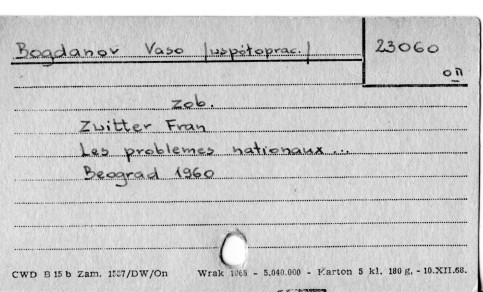 Bogdanov Vaso /współoprac./ 23060
on
zob.
Zwitter Fran
Les problemes nationaux...
Beograd 1960
CWD B 15 b Zam. 1557/DW/On Wrak 1068 - 5.040.000 - Karton 5 kl. 180 g. - 10.XII.68.